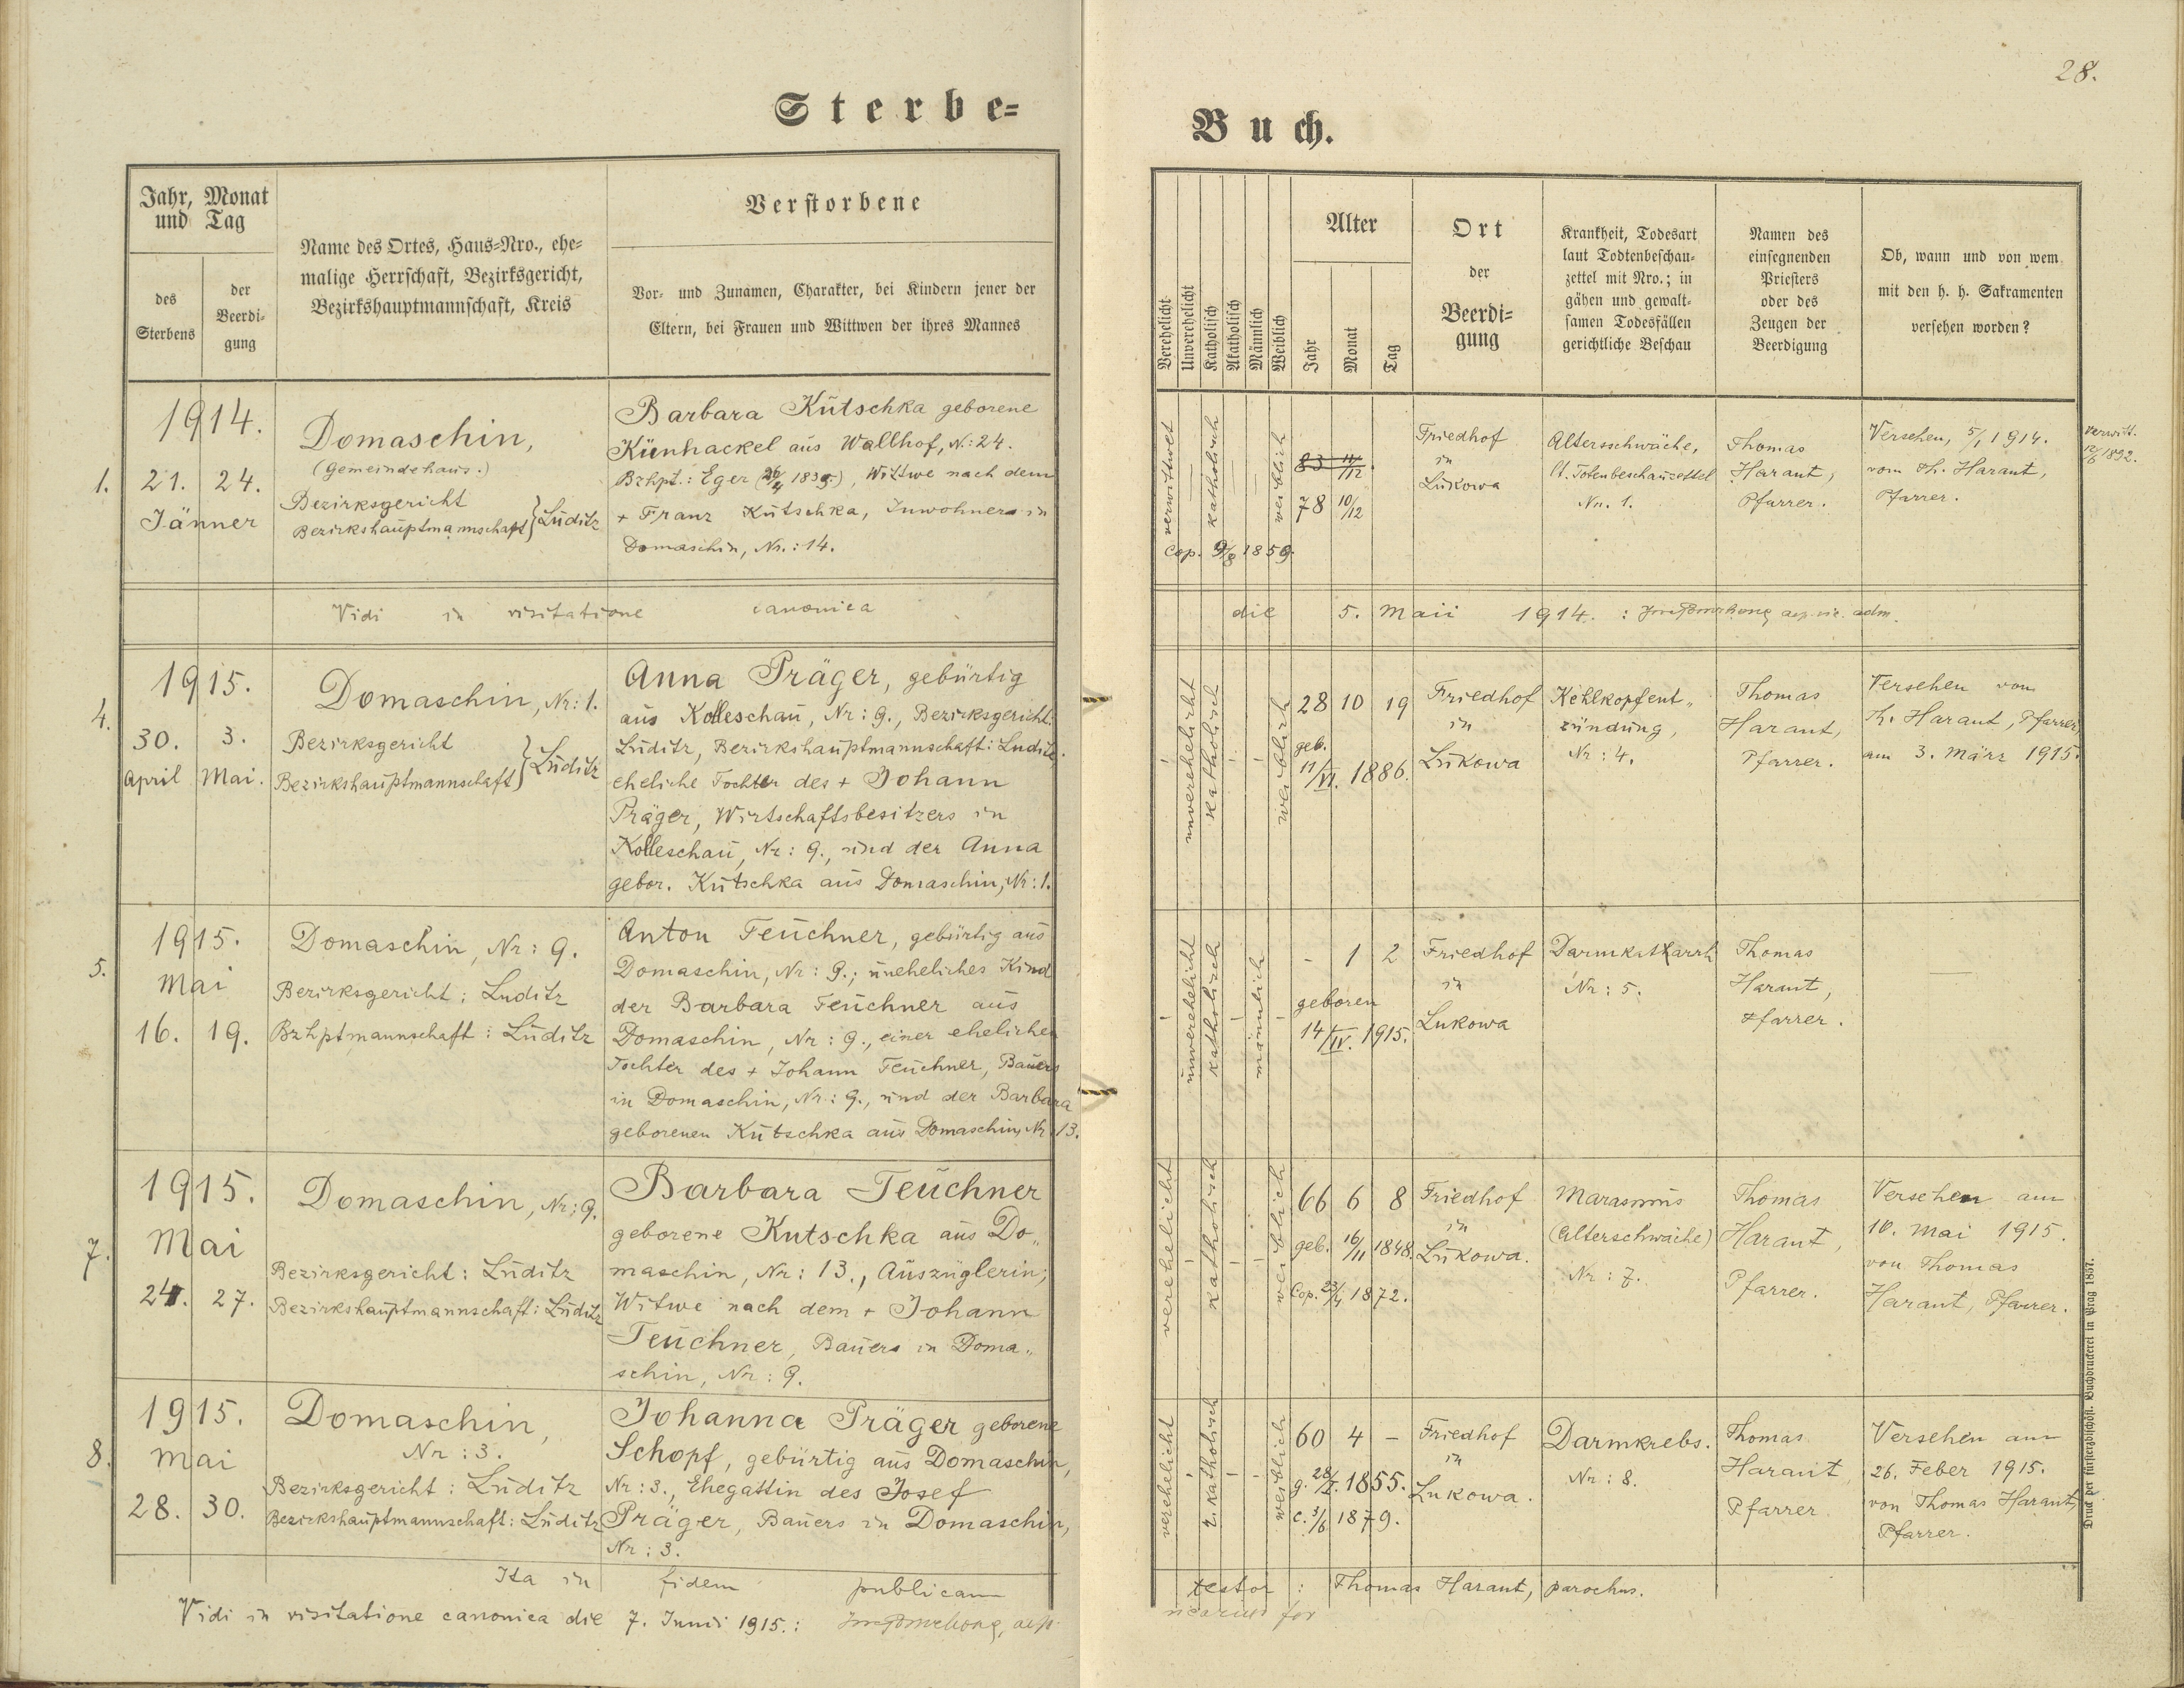 28.
Sterbe=
Buch.
Jahr, Monat
und Tag
des
Sterbens
der
Beerdi-
gung
Name des Ortes, Haus-Nro., ehe-
malige Herrschaft, Bezirksgericht,
Bezirkshauptmannschaft, Kreis
Verstorbene
Vor- und Zunamen, Charakter, bei Kindern jener der
Eltern, bei Frauen und Wittwen der ihres Mannes
Verehelicht
Unverehelicht
Katholisch
Akatholisch
Männlich
Weiblich
Alter
Jahr
Monat
Tag
Ort
der
Beerdi-
gung
Krankheit, Todesart
laut Todtenbeschau-
zettel mit Nro.; in
gähen und gewalt-
samen Todesfällen
gerichtliche Beschau
Namen des
einsegnenden
Priesters
oder des
Zeugen der
Beerdigung
Ob, wann und von wem
mit den h. h. Sakramenten
versehen worden?
1.
1914.
21. 24.
Jänner
Domaschin,
(Gemeindehaus.)
Bezirksgericht
Bezirkshauptmannschaft } Luditz
Barbara Kutschka geborene
Künhackel aus Wallhof, N: 24.
Bzhpt.: Eger (26/4 1835.), Wittwe nach dem
+ Franz Kutschka, Inwohners in
Domaschin, Nr.: 14.
verwittwet
—
katholisch
—
weiblich
cop. 9/8 1859.
83 11/12.
78 10/12
Friedhof
in
Lukowa
Altersschwäche,
lt. Totenbeschauzettel
Nr. 1.
Thomas
Harant,
Pfarrer.
Versehen, 5/1 1914.
vom Th. Harant,
Pfarrer.
verwitt.
12/6 1892.
Vidi in visitatione canonica die 5. Maii 1914. :
4.
1915.
30. 3.
April Mai.
Domaschin, Nr: 1.
Bezirksgericht
Bezirkshauptmannschaft } Luditz
Anna Präger, gebürtig
aus Kolleschau, Nr: 9., Bezirksgericht:
Luditz, Bezirkshauptmannschaft: Luditz.
eheliche Tochter des + Johann
Präger, Wirtschaftsbesitzers in
Kolleschau, Nr: 9., und der Anna
gebor. Kutschka aus Domaschin, Nr: 1.
unverehelicht
katholisch
weiblich
28 10 19
geb.
11/VI. 1886.
Friedhof
in
Lukowa
Kehlkopfent„
zündung,
Nr: 4.
Thomas
Harant,
Pfarrer.
Versehen von
Th. Harant, Pfarrer
am 3. März 1915.
5.
1915.
Mai
16. 19.
Domaschin, Nr: 9.
Bezirksgericht: Luditz
Bzhptmannschaft: Luditz
Anton Teuchner, gebürtig aus
Domaschin, Nr: 9.; uneheliches Kind
der Barbara Teuchner aus
Domaschin, Nr: 9., einer ehelichen
Tochter des + Johann Teuchner, Bauers
in Domaschin, Nr: 9., und der Barbara
geborenen Kutschka aus Domaschin, Nr 13.
unverehelicht
katholisch
männlich
- 1 2
geboren
14/IV. 1915.
Friedhof
in
Lukowa
Darmkatarrh
Nr: 5.
Thomas
Harant,
Pfarrer.
—
7.
1915.
Mai
24. 27.
Domaschin, Nr: 9.
Bezirksgericht: Luditz
Bezirkshauptmannschaft: Luditz
Barbara Teuchner
geborene Kutschka aus Do„
maschin, Nr: 13., Auszüglerin;
Witwe nach dem + Johann
Teuchner, Bauers in Doma„
schin, Nr: 9.
verehelicht
katholisch
weiblich
66 6 8
geb. 16/11 1848.
Cop. 23/4 1872.
Friedhof
in
Lukowa.
Marasmus
(Alterschwäche)
Nr: 7.
Thomas
Harant,
Pfarrer.
Versehen am
10. Mai 1915.
von Thomas
Harant, Pfarrer.
8.
1915.
Mai
28. 30.
Domaschin,
Nr: 3.
Bezirksgericht: Luditz
Bezirkshauptmannschaft: Luditz
Johanna Präger geborene
Schopf, gebürtig aus Domaschin,
Nr: 3., Ehegattin des Josef
Präger, Bauers in Domaschin,
Nr: 3.
verehelicht
r. katholisch
weiblich
60 4 –
g. 28/I. 1855.
c. 3/6 1879.
Friedhof
in
Lukowa.
Darmkrebs.
Nr: 8.
Thomas
Harant
Pfarrer
Versehen am
26. Feber 1915.
von Thomas Harant,
Pfarrer.
Ita in fidem publicam testor: Thomas Harant, parochus.
Vidi in visitatione canonica die 7. Junii 1915.: vicarius for
Druck der fürsterzbischöfl. Buchdruckerei in Prag 1857.